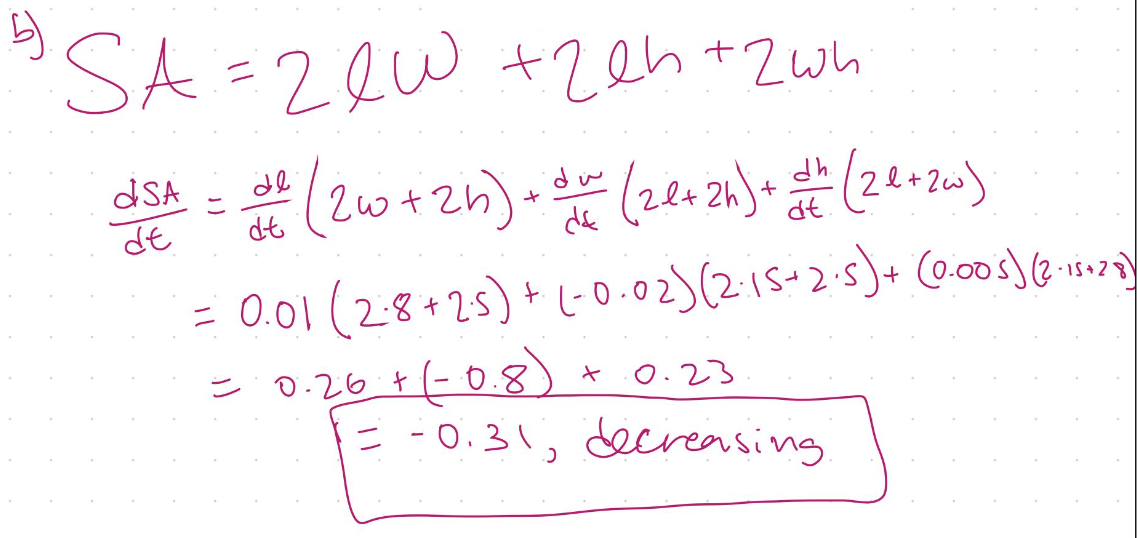 b) SA = 2lw + 2lh + 2wh
dSA/dt = dl/dt (2w + 2h) + dw/dt (2l + 2h) + dh/dt (2l + 2w)
= 0.01 (2·8 + 2·5) + (-0.02)(2·15 + 2·5) + (0.005)(2·15 + 2·8)
= 0.26 + (-0.8) + 0.23
= -0.31, decreasing